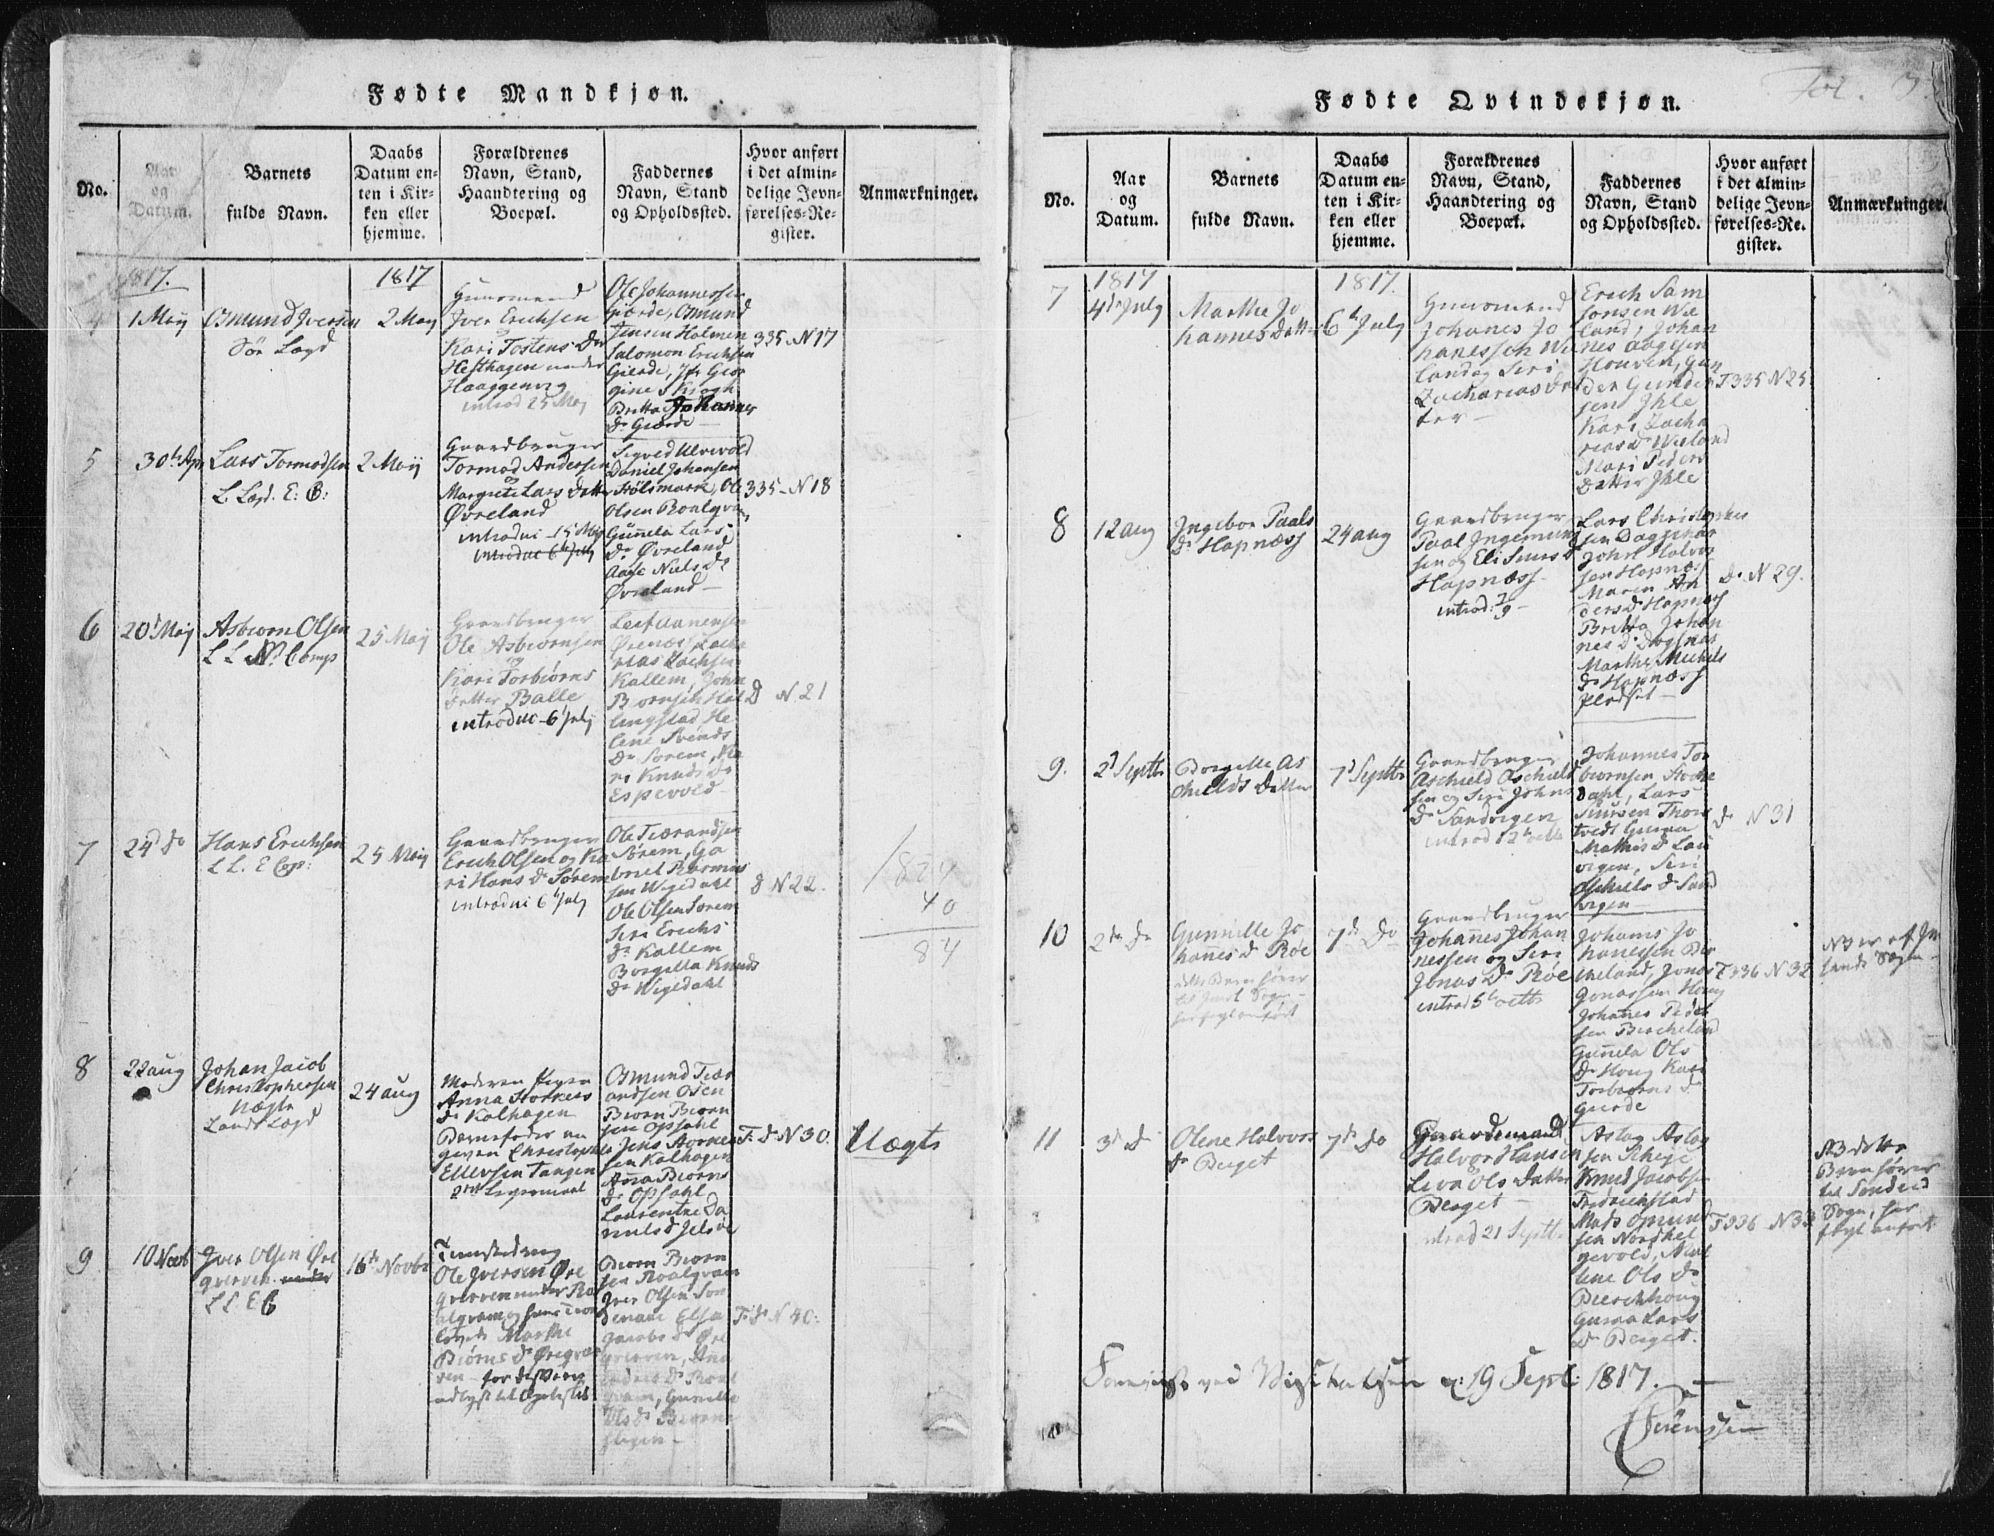 Fødte Mandkjøn.
No.
Aar
og
Datum.
Barnets
fulde Navn.
Daabs
Datum en-
ten i Kir-
ken eller
hjemme.
Forældrenes
Navn, Stand,
Haandtering og
Boepæl.
Faddernes
Navn, Stand
og Opholdssted.
Hvor anført
i det almin-
delige Jevn-
førelses-Re-
gister.
Anmærkninger.
1817.
1817
4
1 Maij
Osmund Iversen
Sør Lægd
2 May
Huusmand
Iver Erichsen
og
Kari Tostens Dr
Hesthagen under
Haaggenvig
introd 25 Maj
Ole Johannessen
Giærde, Osmund
Jensen Holmen
Salomon Erichsen
Gierde, Jfr Geor
gine S Krogh
Britta Johannes
Dr Giærde
335. N17
5
30te Apr
Lars Tormodsen
L. Lægd. E: C:
2 Maij
Gaardbruger
Tormod Andersen
og
Margrete Lars Datter
Øvreland
introdu - 15 Maj
introduc 6te July
Sigved Ulvevold
Daniel Johansen
Stølsmark, Ole
Olsen Roalqvam,
Gunnela Lars
Dr Øvreland
Aase Niels Dr
Øvreland
335 - N18
6
20d Maj
Asbiørn Olsen
L L No Comp
25 Maij
Gaardbruger
Ole Asbiørnsen
og
Kari Torbiørns
Datter Balle
introduc - 6 July
Kallem, John
Biørnsen Hæl
lingstad He
lene Svends
Dr Sørem, Ka
ri Knuds Dr
Espevold
D N21
7
24d Do
Hans Erichsen
L L. E Cop:
25 Maij
Gaardbruger
Erich Olsen og Ka
ri Hans Dr Sørem
introduc 6te July
Ole Tiærandsen
Sørem, Ga
briel Rasmus
sen Wigedahl
Ole Olsen Sørem
Siri Erichs
Dr Kallem
Borgilla Knuds
Dr Wigedahl
D N22.
1824
40
84
8
22 aug
Johan Jacob
Christophersen
Uægte
Lands Lægd
24 aug
Moderen Pigen
Anna Storkers
Dr Kalhagen
Barnefader an
given Christopher
Ellevsen Tangen
2det Leiermaal
Osmund Tiær
andsen Osen
Biørn Biørn
sen Opsahl
Jens Størker
sen Kalhagen
Anna Biørns
Dr Opsahl
Laurentze Da
niels D Jelsøe
F. D N30.
Uægte
9
10 Novb
Iver Olsen Øre
qverven under
L L E C
16de Novbr
Ole Iversen Øre
qverven under Ro
alqvam og hans Trou
lovede Marthe
Biørns Dr Øreqver
ven - for desværre
udlyst til Egteskab
Biørn Biørn
sen Roalqvam
Iver Olsen Søn
denaae Elsa
Jacobs Dr Øre
qverven, Ana
Anders Dr Roal
qvam, Gunnilla
Ols Dr Biørne
hagen
F. D N 40.
Fødte Qvindekjøn.
Fol. 3
No.
Aar
og
Datum.
Barnets
fulde Navn.
Daabs
Datum en-
ten i Kir-
ken eller
hjemme.
Forældrenes
Navn, Stand,
Haandtering og
Boepæl.
Faddernes
Navn, Stand
og Opholdssted.
Hvor anført
i det almin-
delige Jevn-
førelses-Re-
gister.
Anmærkninger.
1817
1817.
7
4de July
Marthe Jo
hannes Datter
6te July
Huusmand
Johanes Jo
hanessen We
land og Siri
Zacharias Dat
ter
Erich Sam
sonsen We
land, Johan
nes Aagesen
Houven, Gun
der Gunder
sen Ihle
Kari Zacha
rias D Weeland
Mari Peders
Datter Ihle
F 335 N 25
8
12 aug
Ingebor Paals
Dr Hapnæss
24 aug
Gaardbruger
Paal Ingemund
sen og Eli Siurs D
Hapnæss
introd. 7/9
Lars Christopher
sen Dagsnæs
John Halvor
sen Hapnæs
Maren An
ders D Hapnæss
Britta Johan
nes D Dagsnæs
Marthe Michels
Dr Hapnæss
Pladset
D. N 29.
9.
2d Septbr
Borgille As
chields Datter
7d Septbr
Gaardbruger
Aschield Aschield
sen og Siri Johns
Dr Sandvigen
introd 12te octb
Johannes Tor
biørnsen Stoche
dahl, Lars
Siursen Thors
tvedt Gunna
Mathis D Lau
vigen, Siri
Aschields D Sand
vigen
D N 31
10
2den D
Gunnille Jo
hannes D Røe
dette Barn hører
til Jæsl. Sogn
her feyl anført
7de Do
Gaardbruger
Johannes Johan
nessen og Siri
Jonas Dr Røe
introd 5te octb
Johans Jo
hanessen Bir
cheland, Jonas
Jonassen Houg
Johanes Peder
sen Bircheland
Gunnela Ols
Dr Houg Kari
Torbiørns D
Gierde
F 336 N 32
11
3d D
Olene Halvors
Dr Berget
7de Do
Gaardemand
Halvor Hansen
Liva Ols Datter
Berget
introd 21 Septbr
Aslag Aslag
sen Scheje
Knud Jacobsen
Fredrichstad
Mads Osmund
sen Nordhel
gevold, Mal
lene Ols Dr
Bierchhoug
Gunna Lars
D Berget.
F 336 N 33
NB dette
Barn hører
til Sands
Sogn, her
feyl anført
Foreviist ved Visitatsen d: 19 Sept: 1817.
Sørenssen